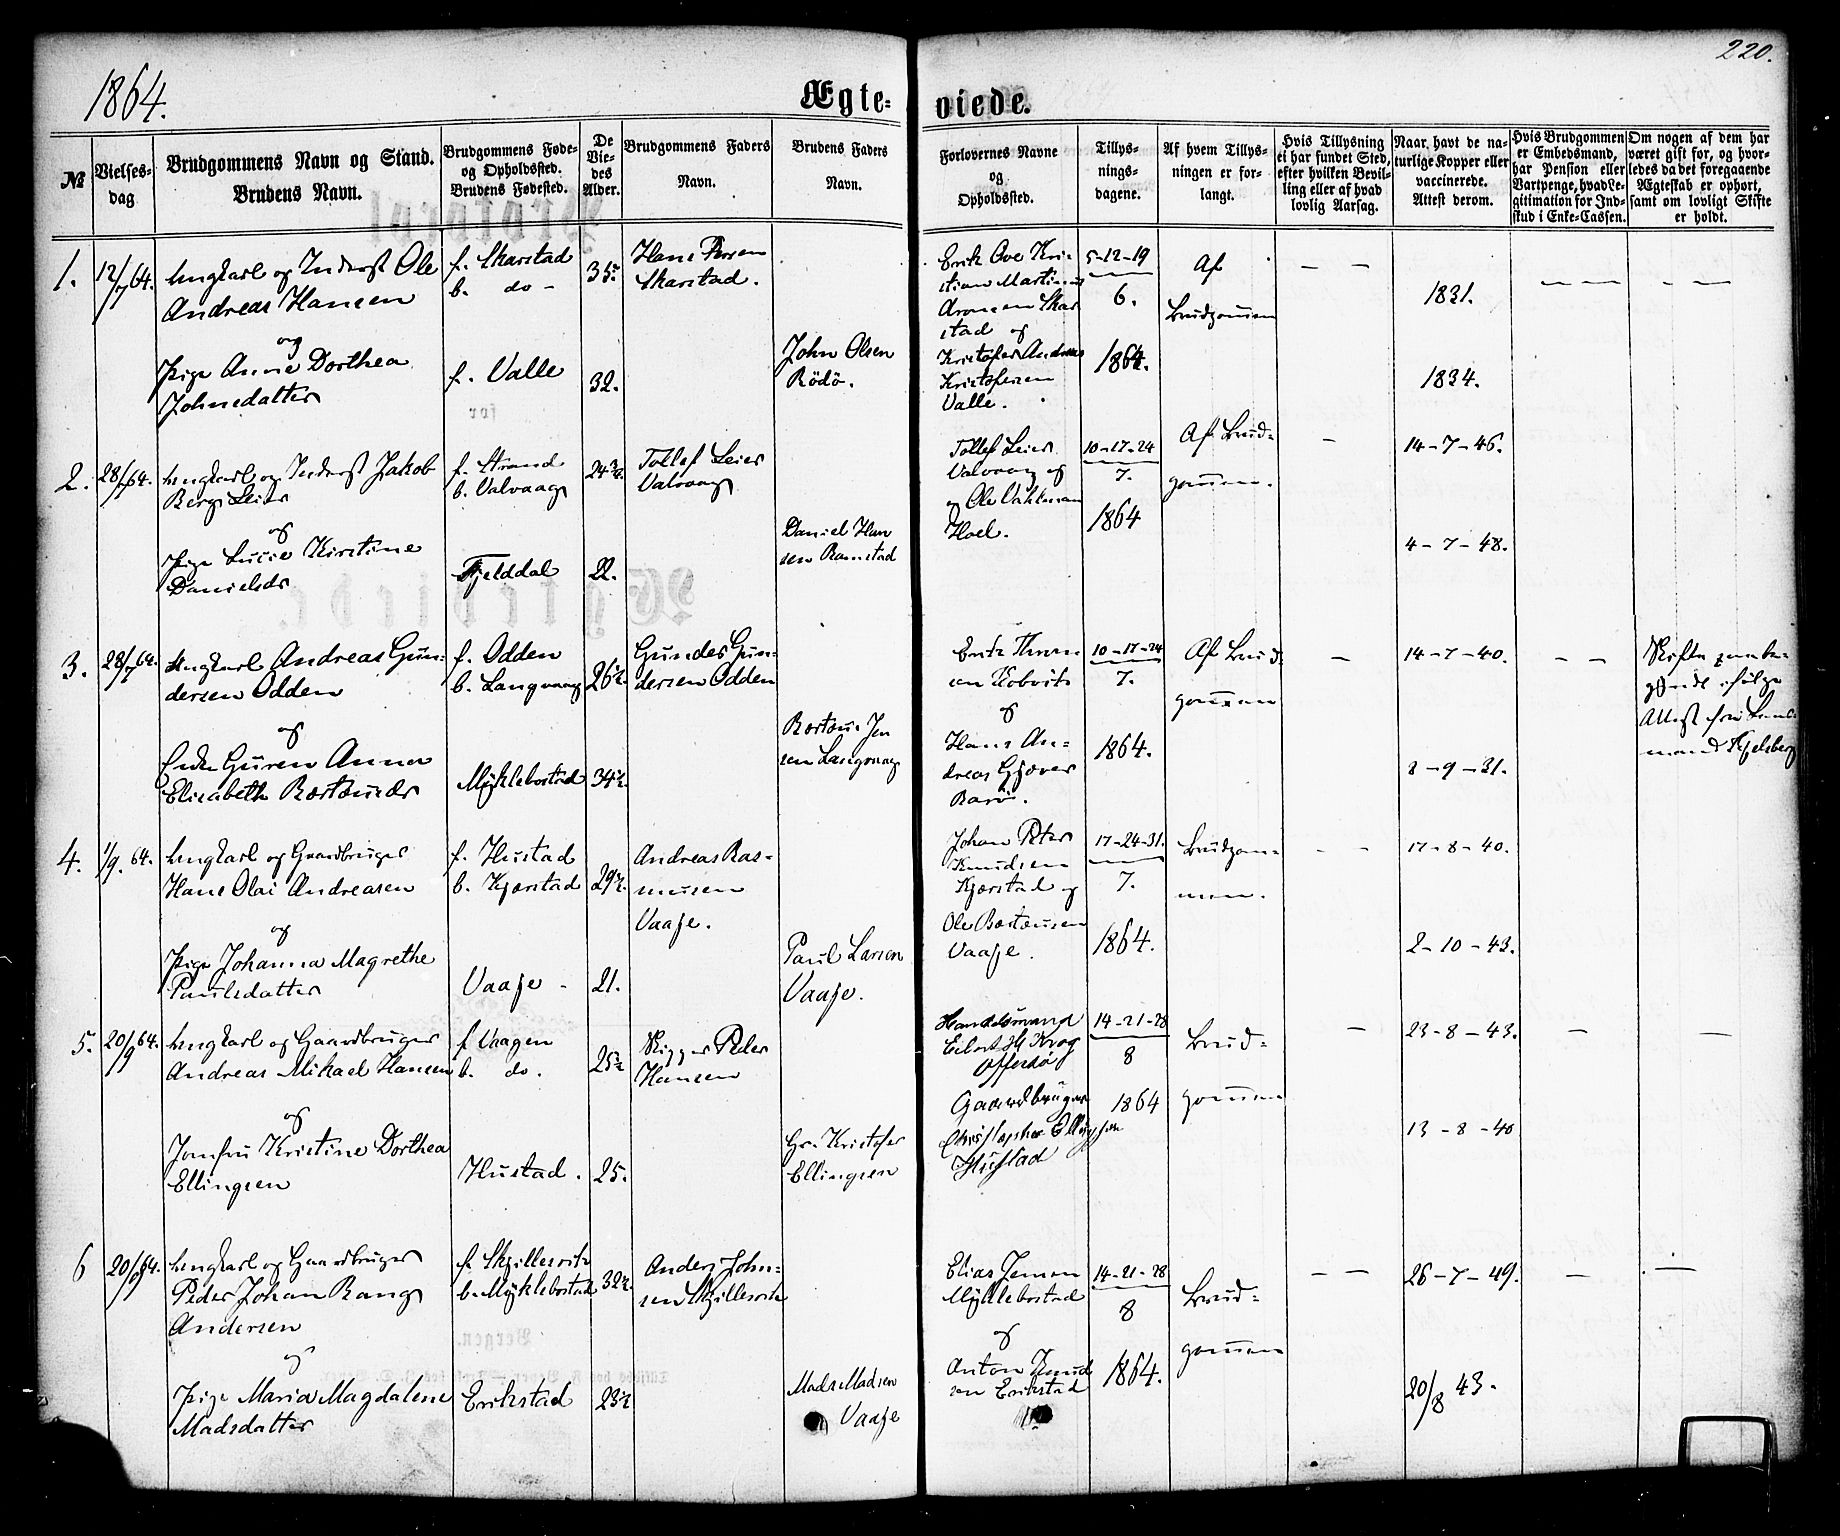 220.
1864.
Ægte=
viede.
№
Vielses-
dag
Brudgommens Navn og Stand.
Brudens Navn.
Brudgommens Føde-
og Opholdssted.
Brudens Fødested.
De
Vie-
des
Alder.
Brudgommens Faders
Navn.
Brudens Faders
Navn.
Forlovernes Navne
og
Opholdssted.
Tillys-
nings-
dagene.
Af hvem Tillys-
ningen er for-
langt.
Hvis Tillysning
ei har fundet Sted,
efter hvilken Bevil-
ling eller af hvad
lovlig Aarsag.
Naar havt de na-
turlige Kopper eller
vaccinerede.
Attest derom.
Hvis Brudgommen
er Embedsmand,
har Pension eller
Vartpenge, hvad Le-
gitimation for Ind-
skud i Enke-Cassen.
Om nogen af dem har
været gift for, og hvor-
ledes da det foregaaende
Ægteskab er ophørt,
samt om lovligt Skifte
er holdt.
1.
12/7 64.
Ungkarl og Inderst Ole
Andreas Hansen
og
Pige Anne Dorthea
Johnsdatter
f. Skarstad
b. do -
f. Valle
35.
32.
Hans
Skarstad.
John Olsen
Rödö.
Erik Ove Kri-
stian Martinus
Aronsen Skar
stad og
Kristofer Andreas
Kristofersen
Valle.
5-12-19
6.
1864.
Af
Brudgommen
— —
1831.
1834.
— —
— —
2.
28/7 64.
Ungkarl og Inderst Jakob
Berg Leier
og
Pige Lucie Kirstine
Danielsdr
f. Strand
b. Valvaag
Fjelddal
24
22.
Tollef Leier
Valvaag
Daniel Han
sen Ramstad
Tollef Leier
Valvaag og
og Ole
Hoel.
10-17-24
7.
1864
Af Brud-
gommen.
—
14-7-46.
4-7-48.
3.
28/7 64.
Ungkarl Andreas Gun-
dersen Odden
og
Enke Guren Anna
Elisabeth
f. Odden
b. Langvaag
Myklebostad
26½.
34½.
Gunder Gun-
dersen Odden
Jen
sen Langvaag
Erik
sen
og
Hans An-
dreas Gjæver
Barö.
10-17-24
7.
1864.
Af Brud-
gommen
—
14-7-40.
8-9-31.
— —
Skifte
Attest fra Lens-
mand Kjelsberg
4.
1/9. 64.
Ungkarl og Gaardbruger
Hans Olai Andreasen
og
Pige Johanna Magrethe
Paulsdatter
f. Hustad
b. Kjærstad
Vaaje -
29½.
21.
Andreas Ras-
mussen
Vaaje.
Paul Larsen
Vaaje.
Johan Peter
Knudsen
Kjærstad og
Ole
Vaaje.
17-24-31.
7.
1864.
Brudgom-
men.
- -
17-8-40.
2-10-43.
5.
20/9 64.
Ungkarl og Gaardbruger
Andreas Mikael Hansen
og
Jomfru Kristine Dorthea
Ellingsen
f. Vaagen
b. do.
Hustad.
25½
25.
Skipper Peder
Hansen
Gr. Kristofer
Ellingsen
Handelsmand
Eilert H Krog
Offersö
Gaardbruger
Christopher Ellingsen
Hustad
14-21-28
8
1864
Brud-
gommen
—
23-8-43.
13-8-40
—
—
6
20/9 64.
Ungkarl og Gaardbruger
Peder Johan Bang
Andersen
og
Pige Maria Magdalene
Madsdatter
f. Skjellesvik
b. Myklebostad
Erikstad
32½.
23½
Anders John-
sen Skjellesvik
Mads Madsen
Vaaje
Elias Jensen
Myklebostad
og
Anton Knud
sen Erikstad
14-21-28
8
1864.
Brud-
gommen
— —
26-7-49.
20/8 43.
—
—